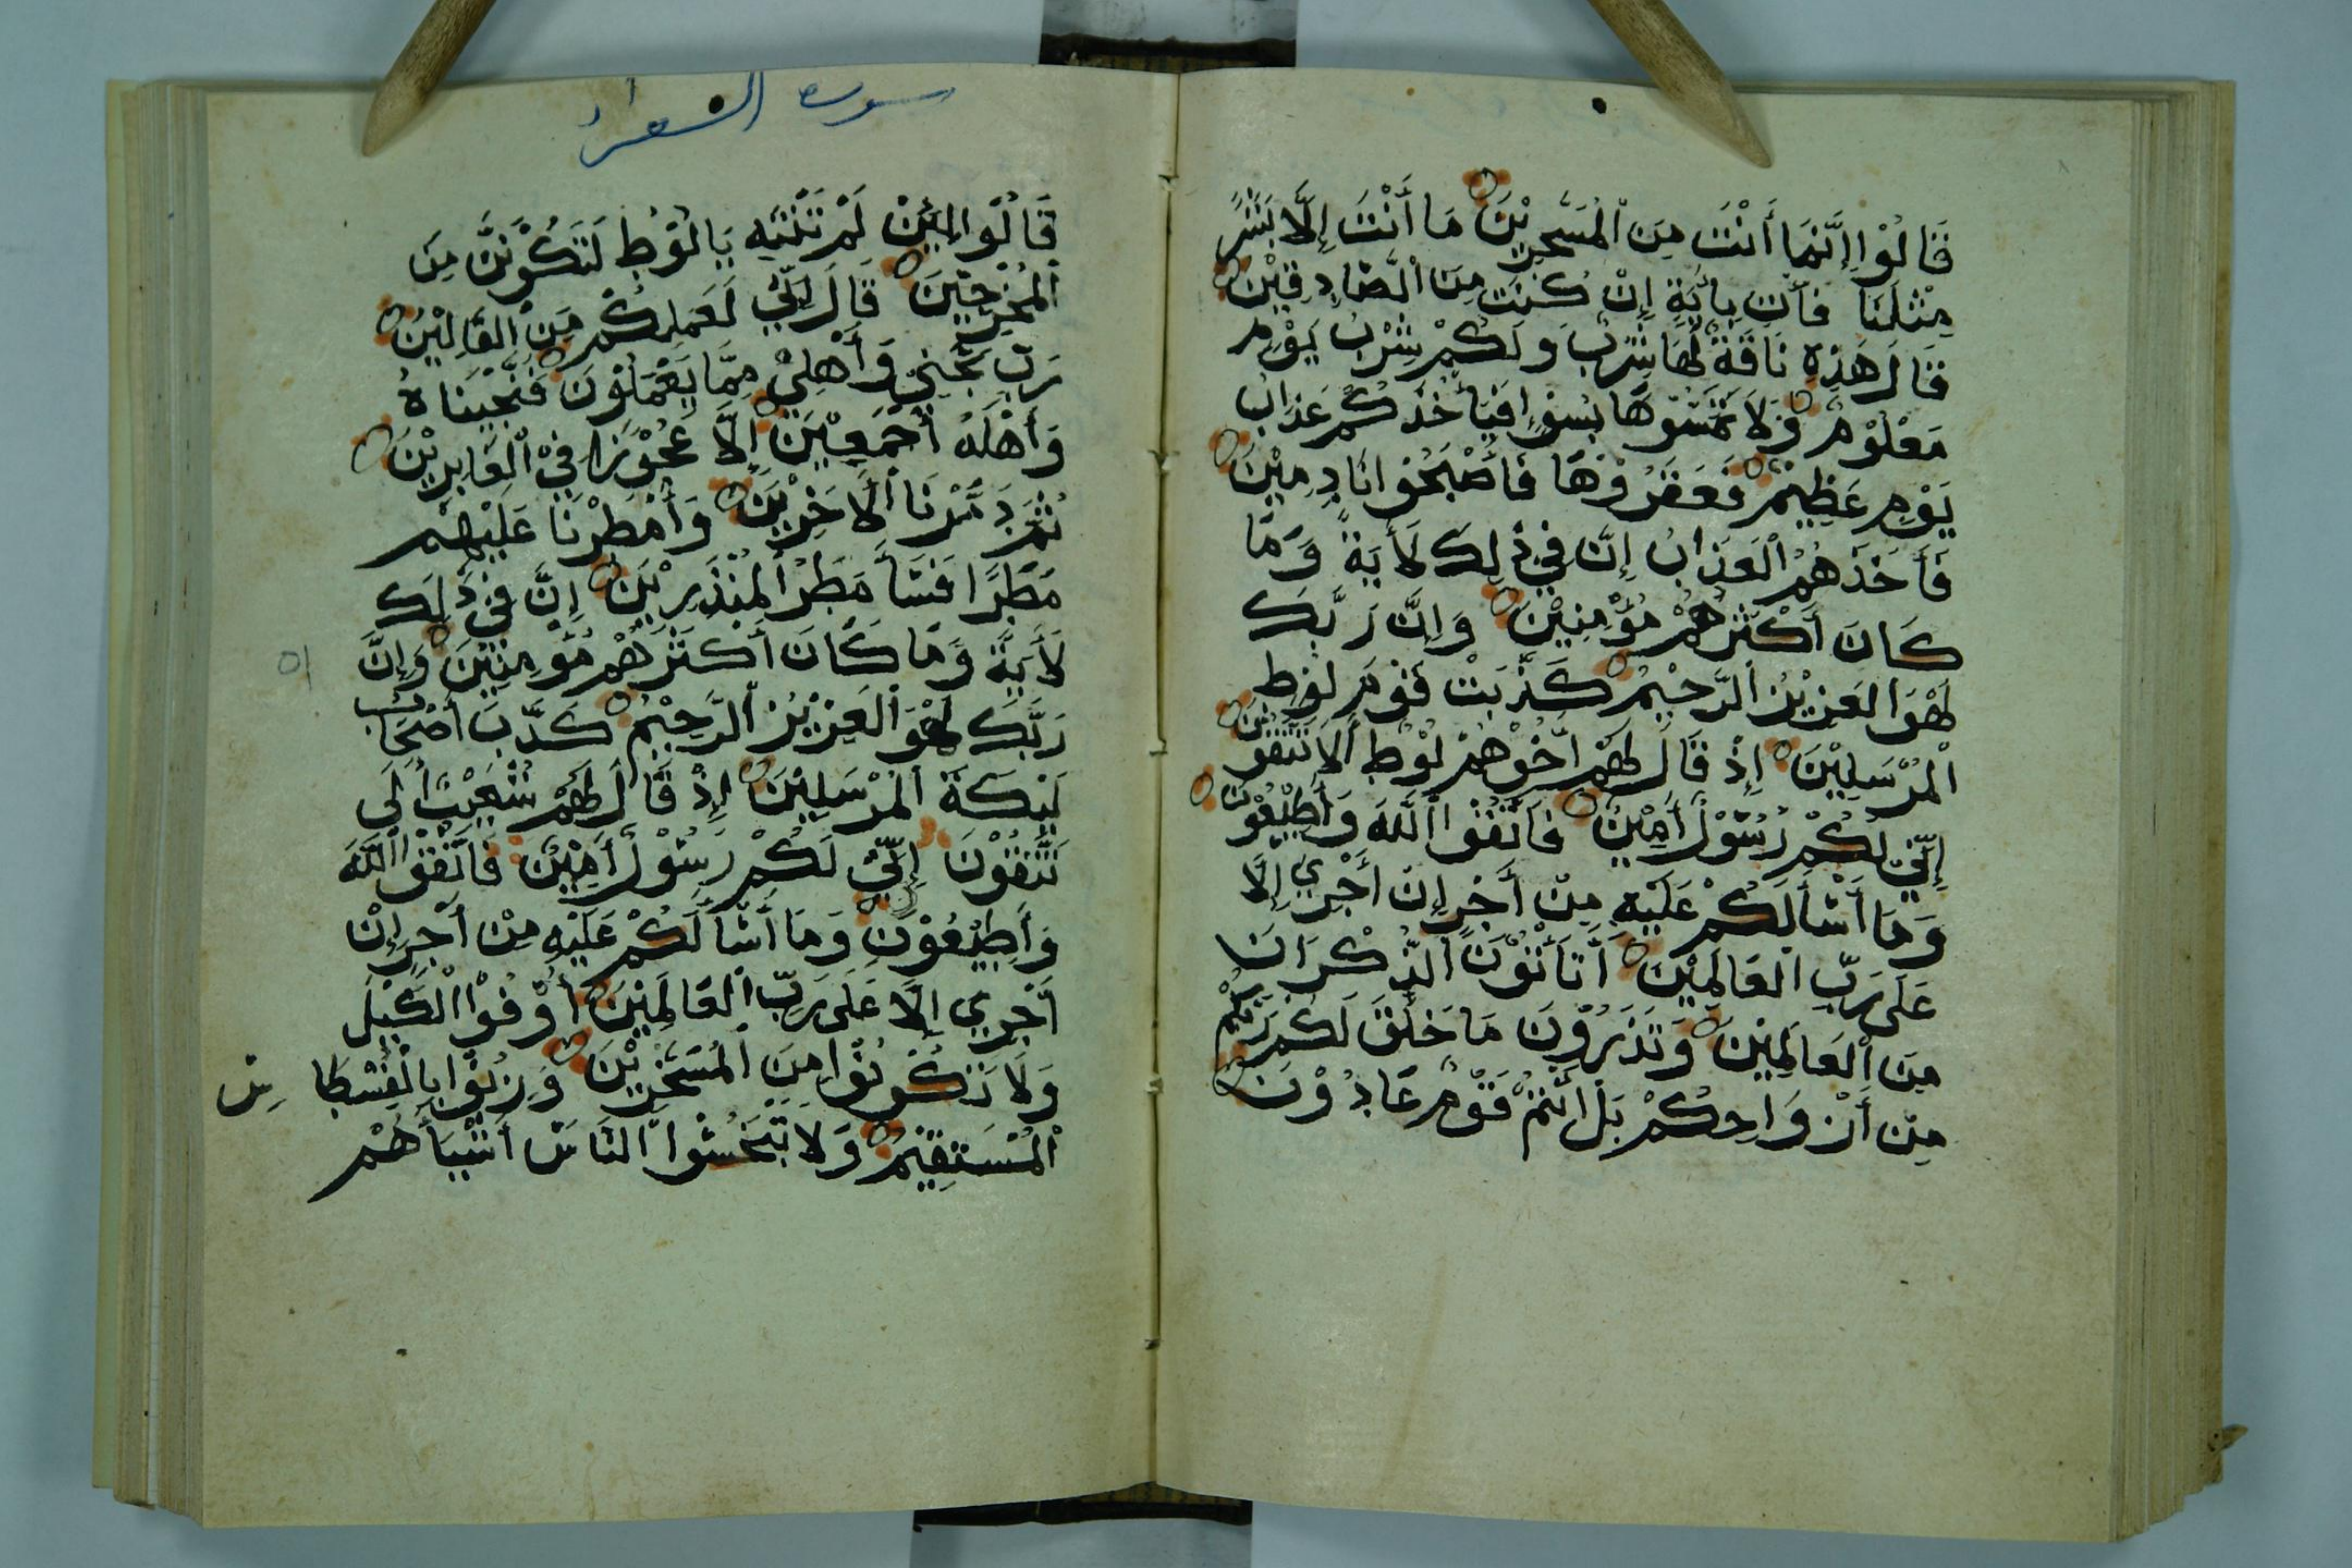 قَالُوْا إِنَّمَا أَنْتَ مِنَ الْمُسَحَّرِيْنَ مَا أَنْتَ إِلَّا بَشَرٌ
مِثْلُنَا فَأْتِ بِأَيَةٍ إِنْ كُنْتَ مِنَ الْصَّادِقِيْنَ
قَالَ هَذِهِ نَاقَةٌ لَهَا شِرْبٌ وَلَكُمْ شِرْبُ يَوْمٍ
مَعْلُوْمٍ وَلَا تَمَسُّوْهَا بِسُوْءٍ فَيَأْخُذَكُمْ عَذَابُ
يَوْمٍ عَظِيْمٍ فَعَقَرُوْهَا فَأَصْبَحُوْا نَادِمِيْنَ
فَأَخَذَهُمُ الْعَذَابُ إِنَّ فِيْ ذَلِكَ لَأَيَةً وَمَا
كَانَ أَكْثَرُهُمْ مُؤْمِنِيْنَ وَإِنَّ رَبَّكَ
لَهُوَ الْعَزِيْزُ الرَّحِيْمُ كَذَّبَتْ قَوْمُ لُوْطٍ
الْمُرْسَلِيْنَ إِذْ قَالَ لَهُمْ أَخُوْهُمْ لُوْطٌ أَلَا تَتَّقُوْنَ
إِنِّيْ لَكُمْ رَسُوْلٌ أَمِيْنٌ فَاتَّقُوْا اللَّهَ وَأَطِيْعُوْنِ
وَمَا أَسْأَلُكُمْ عَلَيْهِ مِنْ أَجْرٍ إِنْ أَجْرِيَ إِلَّا
عَلَى رَبِّ الْعَالَمِيْنَ أَتَأْتُوْنَ الذُّكْرَانَ
مِنَ الْعَالَمِيْنَ وَتَذَرُوْنَ مَا خَلَقَ لَكُمْ رَبُّكُمْ
مِنْ أَزْوَاجِكُمْ بَلْ أَنْتُمْ قَوْمٌ عَادُوْنَ
سورة الشعراء
قَالُوْا لَئِنْ لَمْ تَنْتَهِ يَا لُوْطُ لَتَكُوْنَنَّ مِنَ
الْمُخْرَجِيْنَ قَالَ إِنِّيْ لِعَمَلِكُمْ مِنَ الْقَالِيْنَ
رَبِّ نَجِّنِيْ وَأَهْلِيْ مِمَّا يَعْمَلُوْنَ فَنَجَّيْنَاهُ
وَأَهْلَهُ أَجْمَعِيْنَ إِلَّا عَجُوْزًا فِيْ الْغَابِرِيْنَ
ثُمَّ دَمَّرْنَا الْأَخَرِيْنَ وَأَمْطَرْنَا عَلَيْهِمْ
مَطَرًا فَسَاءَ مَطَرُ الْمُنْذَرِيْنَ إِنَّ فِيْ ذَلِكَ
لَأَيَةً وَمَا كَانَ أَكْثَرُهُمْ مُؤْمِنِيْنَ وَإِنَّ
رَبَّكَ لَهُوَ الْعَزِيْزُ الرَّحِيْمُ كَذَّبَ أَصْحَابُ
لَيْكَةَ الْمُرْسَلِيْنَ إِذْ قَالَ لَهُمْ شُعَيْبٌ أَلَا
تَتَّقُوْنَ إِنِّيْ لَكُمْ رَسُوْلٌ أَمِيْنٌ فَاتَّقُوْا اللَّهَ
وَأَطِيْعُوْنِ وَمَا أَسْأَلُكُمْ عَلَيْهِ مِنْ أَجْرٍ إِنْ
أَجْرِيَ إِلَّا عَلَى رَبِّ الْعَالَمِيْنَ أَوْفُوْا الْكَيْلَ
وَلَا تَكُوْنُوْا مِنَ الْمُسَخِّرِيْنَ وَزِنُوْا بِالْقِسْطَاسِ
الْمُسْتَقِيْمِ وَلَا تَبْخَسُوْا النَّاسَ أَشْيَاءَهُمْ
٥١